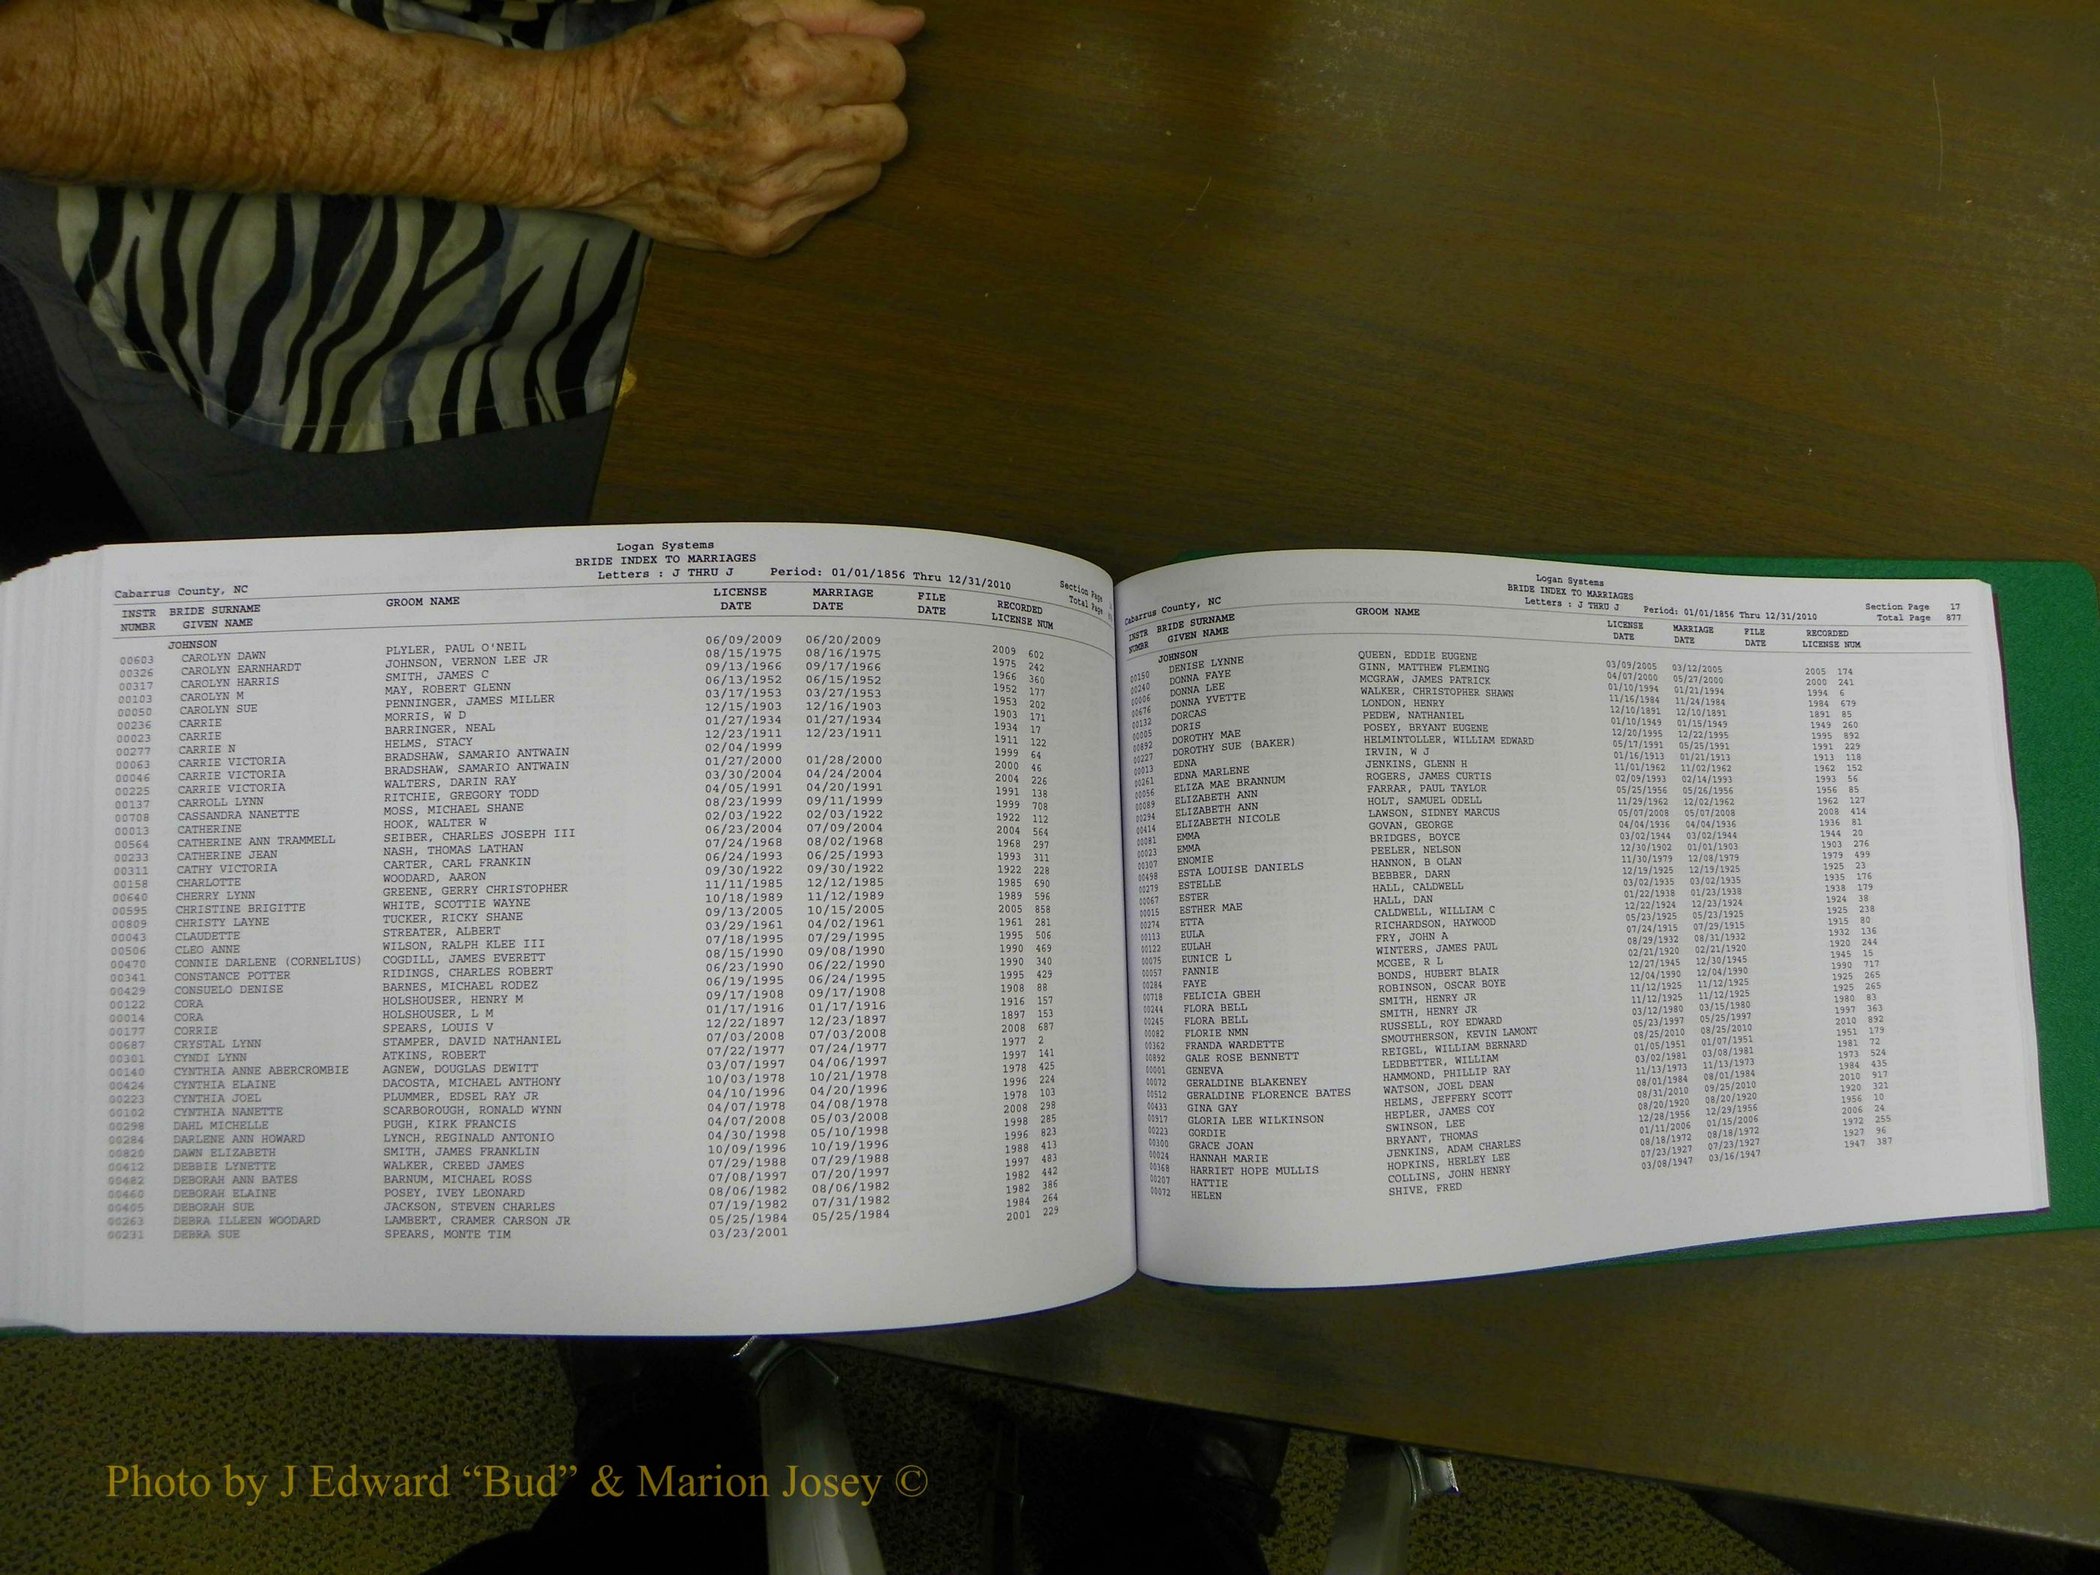 Logan Systems
BRIDE INDEX TO MARRIAGES
Cabarrus County, NC Letters : J THRU J Period: 01/01/1856 Thru 12/31/2010 Section Page
Total Page
INSTR BRIDE SURNAME GROOM NAME LICENSE MARRIAGE FILE RECORDED
NUMBR GIVEN NAME DATE DATE DATE LICENSE NUM
JOHNSON
00603 CAROLYN DAWN PLYLER, PAUL O'NEIL 06/09/2009 06/20/2009 2009 602
00326 CAROLYN EARNHARDT JOHNSON, VERNON LEE JR 08/15/1975 08/16/1975 1975 242
00317 CAROLYN HARRIS SMITH, JAMES C 09/13/1966 09/17/1966 1966 360
00103 CAROLYN M MAY, ROBERT GLENN 06/13/1952 06/15/1952 1952 177
00050 CAROLYN SUE PENNINGER, JAMES MILLER 03/17/1953 03/27/1953 1953 202
00236 CARRIE MORRIS, W D 12/15/1903 12/16/1903 1903 171
00023 CARRIE BARRINGER, NEAL 01/27/1934 01/27/1934 1934 17
00277 CARRIE N HELMS, STACY 12/23/1911 12/23/1911 1911 122
00063 CARRIE VICTORIA BRADSHAW, SAMARIO ANTWAIN 02/04/1999 1999 64
00046 CARRIE VICTORIA BRADSHAW, SAMARIO ANTWAIN 01/27/2000 01/28/2000 2000 46
00225 CARRIE VICTORIA WALTERS, DARIN RAY 03/30/2004 04/24/2004 2004 226
00137 CARROLL LYNN RITCHIE, GREGORY TODD 04/05/1991 04/20/1991 1991 138
00708 CASSANDRA NANETTE MOSS, MICHAEL SHANE 08/23/1999 09/11/1999 1999 708
00013 CATHERINE HOOK, WALTER W 02/03/1922 02/03/1922 1922 112
00564 CATHERINE ANN TRAMMELL SEIBER, CHARLES JOSEPH III 06/23/2004 07/09/2004 2004 564
00233 CATHERINE JEAN NASH, THOMAS LATHAN 07/24/1968 08/02/1968 1968 297
00311 CATHY VICTORIA CARTER, CARL FRANKIN 06/24/1993 06/25/1993 1993 311
00158 CHARLOTTE WOODARD, AARON 09/30/1922 09/30/1922 1922 228
00640 CHERRY LYNN GREENE, GERRY CHRISTOPHER 11/11/1985 12/12/1985 1985 690
00595 CHRISTINE BRIGITTE WHITE, SCOTTIE WAYNE 10/18/1989 11/12/1989 1989 596
00809 CHRISTY LAYNE TUCKER, RICKY SHANE 09/13/2005 10/15/2005 2005 858
00043 CLAUDETTE STREATER, ALBERT 03/29/1961 04/02/1961 1961 281
00506 CLEO ANNE WILSON, RALPH KLEE III 07/18/1995 07/29/1995 1995 506
00470 CONNIE DARLENE (CORNELIUS) COGDILL, JAMES EVERETT 08/15/1990 09/08/1990 1990 469
00341 CONSTANCE POTTER RIDINGS, CHARLES ROBERT 06/23/1990 06/22/1990 1990 340
00429 CONSUELO DENISE BARNES, MICHAEL RODEZ 06/19/1995 06/24/1995 1995 429
00122 CORA HOLSHOUSER, HENRY M 09/17/1908 09/17/1908 1908 88
00014 CORA HOLSHOUSER, L M 01/17/1916 01/17/1916 1916 157
00177 CORRIE SPEARS, LOUIS V 12/22/1897 12/23/1897 1897 153
00687 CRYSTAL LYNN STAMPER, DAVID NATHANIEL 07/03/2008 07/03/2008 2008 687
00301 CYNDI LYNN ATKINS, ROBERT 07/22/1977 07/24/1977 1977 2
00140 CYNTHIA ANNE ABERCROMBIE AGNEW, DOUGLAS DEWITT 03/07/1997 04/06/1997 1997 141
00424 CYNTHIA ELAINE DACOSTA, MICHAEL ANTHONY 10/03/1978 10/21/1978 1978 425
00223 CYNTHIA JOEL PLUMMER, EDSEL RAY JR 04/10/1996 04/20/1996 1996 224
00102 CYNTHIA NANETTE SCARBOROUGH, RONALD WYNN 04/07/1978 04/08/1978 1978 103
00298 DAHL MICHELLE PUGH, KIRK FRANCIS 04/07/2008 05/03/2008 2008 298
00284 DARLENE ANN HOWARD LYNCH, REGINALD ANTONIO 04/30/1998 05/10/1998 1998 285
00820 DAWN ELIZABETH SMITH, JAMES FRANKLIN 10/09/1996 10/19/1996 1996 823
00412 DEBBIE LYNETTE WALKER, CREED JAMES 07/29/1988 07/29/1988 1988 413
00482 DEBORAH ANN BATES BARNUM, MICHAEL ROSS 07/08/1997 07/20/1997 1997 483
00460 DEBORAH ELAINE POSEY, IVEY LEONARD 08/06/1982 08/06/1982 1982 442
00405 DEBORAH SUE JACKSON, STEVEN CHARLES 07/19/1982 07/31/1982 1982 386
00263 DEBRA ILLEEN WOODARD LAMBERT, CRAMER CARSON JR 05/25/1984 05/25/1984 1984 264
00231 DEBRA SUE SPEARS, MONTE TIM 03/23/2001 2001 229
Logan Systems
BRIDE INDEX TO MARRIAGES
Cabarrus County, NC Letters : J THRU J Period: 01/01/1856 Thru 12/31/2010 Section Page 17
Total Page 877
INSTR BRIDE SURNAME GROOM NAME LICENSE MARRIAGE FILE RECORDED
NUMBR GIVEN NAME DATE DATE DATE LICENSE NUM
JOHNSON
00150 DENISE LYNNE QUEEN, EDDIE EUGENE 03/09/2005 03/12/2005 2005 174
00240 DONNA FAYE GINN, MATTHEW FLEMING 04/07/2000 05/27/2000 2000 241
00006 DONNA LEE MCGRAW, JAMES PATRICK 01/10/1994 01/21/1994 1994 6
00676 DONNA YVETTE WALKER, CHRISTOPHER SHAWN 11/16/1984 11/24/1984 1984 679
00132 DORCAS LONDON, HENRY 12/10/1891 12/10/1891 1891 85
00005 DORIS PEDEW, NATHANIEL 01/10/1949 01/15/1949 1949 260
00892 DOROTHY MAE POSEY, BRYANT EUGENE 12/20/1995 12/22/1995 1995 892
00227 DOROTHY SUE (BAKER) HELMINTOLLER, WILLIAM EDWARD 05/17/1991 05/25/1991 1991 229
00013 EDNA IRVIN, W J 01/16/1913 01/21/1913 1913 118
00261 EDNA MARLENE JENKINS, GLENN H 11/01/1962 11/02/1962 1962 152
00056 ELIZA MAE BRANNUM ROGERS, JAMES CURTIS 02/09/1993 02/14/1993 1993 56
00089 ELIZABETH ANN FARRAR, PAUL TAYLOR 05/25/1956 05/26/1956 1956 85
00294 ELIZABETH ANN HOLT, SAMUEL ODELL 11/29/1962 12/02/1962 1962 127
00414 ELIZABETH NICOLE LAWSON, SIDNEY MARCUS 05/07/2008 05/07/2008 2008 414
00081 EMMA GOVAN, GEORGE 04/04/1936 04/04/1936 1936 81
00023 EMMA BRIDGES, BOYCE 03/02/1944 03/02/1944 1944 20
00307 ENOMIE PEELER, NELSON 12/30/1902 01/01/1903 1903 276
00498 ESTA LOUISE DANIELS HANNON, B OLAN 11/30/1979 12/08/1979 1979 499
00279 ESTELLE BEBBER, DARN 12/19/1925 12/19/1925 1925 23
00067 ESTER HALL, CALDWELL 03/02/1935 03/02/1935 1935 176
00015 ESTHER MAE HALL, DAN 01/22/1938 01/23/1938 1938 179
00274 ETTA CALDWELL, WILLIAM C 12/22/1924 12/23/1924 1924 38
00113 EULA RICHARDSON, HAYWOOD 05/23/1925 05/23/1925 1925 238
00122 EULAH FRY, JOHN A 07/24/1915 07/29/1915 1915 80
00075 EUNICE L WINTERS, JAMES PAUL 08/29/1932 08/31/1932 1932 136
00057 FANNIE MCGEE, R L 02/21/1920 02/21/1920 1920 244
00284 FAYE BONDS, HUBERT BLAIR 12/27/1945 12/30/1945 1945 15
00718 FELICIA GBEH ROBINSON, OSCAR BOYE 12/04/1990 12/04/1990 1990 717
00244 FLORA BELL SMITH, HENRY JR 11/12/1925 11/12/1925 1925 265
00245 FLORA BELL SMITH, HENRY JR 11/12/1925 11/12/1925 1925 265
00082 FLORIE NMN RUSSELL, ROY EDWARD 03/12/1980 03/15/1980 1980 83
00362 FRANDA WARDETTE SMOUTHERSON, KEVIN LAMONT 05/23/1997 05/25/1997 1997 363
00892 GALE ROSE BENNETT REIGEL, WILLIAM BERNARD 08/25/2010 08/25/2010 2010 892
00001 GENEVA LEDBETTER, WILLIAM 01/05/1951 01/07/1951 1951 179
00072 GERALDINE BLAKENEY HAMMOND, PHILLIP RAY 03/02/1981 03/08/1981 1981 72
00512 GERALDINE FLORENCE BATES WATSON, JOEL DEAN 11/13/1973 11/13/1973 1973 524
00433 GINA GAY HELMS, JEFFERY SCOTT 08/01/1984 08/01/1984 1984 435
00917 GLORIA LEE WILKINSON HEPLER, JAMES COY 08/31/2010 09/25/2010 2010 917
00223 GORDIE SWINSON, LEE 08/20/1920 08/20/1920 1920 321
00300 GRACE JOAN BRYANT, THOMAS 12/28/1956 12/29/1956 1956 10
00024 HANNAH MARIE JENKINS, ADAM CHARLES 01/11/2006 01/15/2006 2006 24
00368 HARRIET HOPE MULLIS HOPKINS, HERLEY LEE 08/18/1972 08/18/1972 1972 255
00207 HATTIE COLLINS, JOHN HENRY 07/23/1927 07/23/1927 1927 96
00072 HELEN SHIVE, FRED 03/08/1947 03/16/1947 1947 387
Photo by J Edward “Bud” & Marion Josey ©